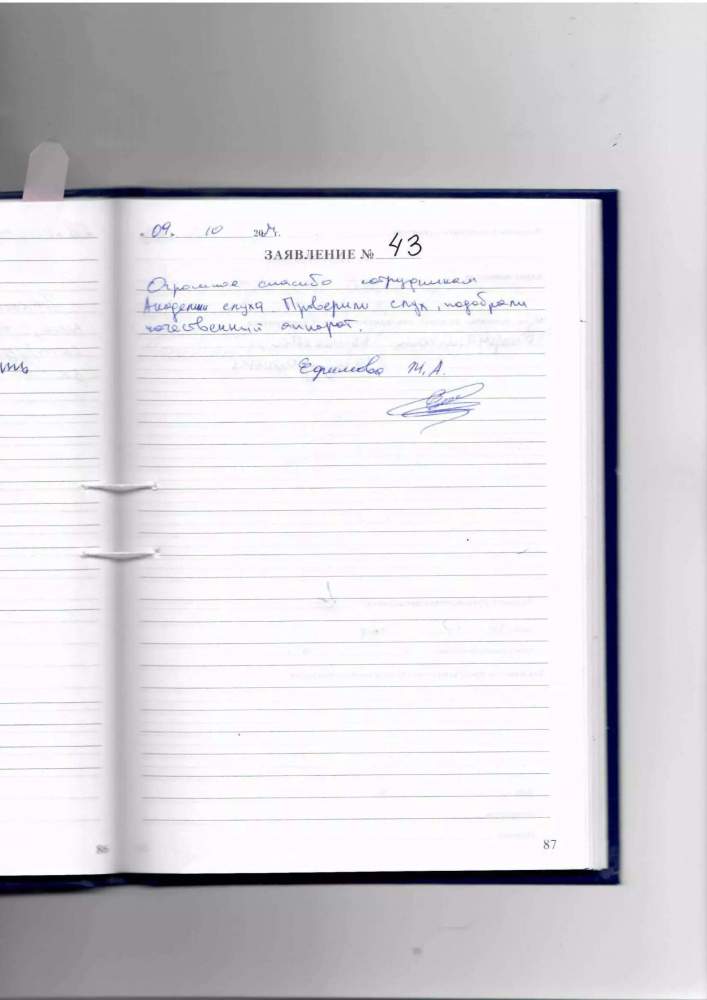 « 09 » 10 20 г.
ЗАЯВЛЕНИЕ № 43
Огромное спасибо сотрудникам
Академии слуха. Проверили слух, подобрали
качественный аппарат.
Ефимова М.А.
86
87